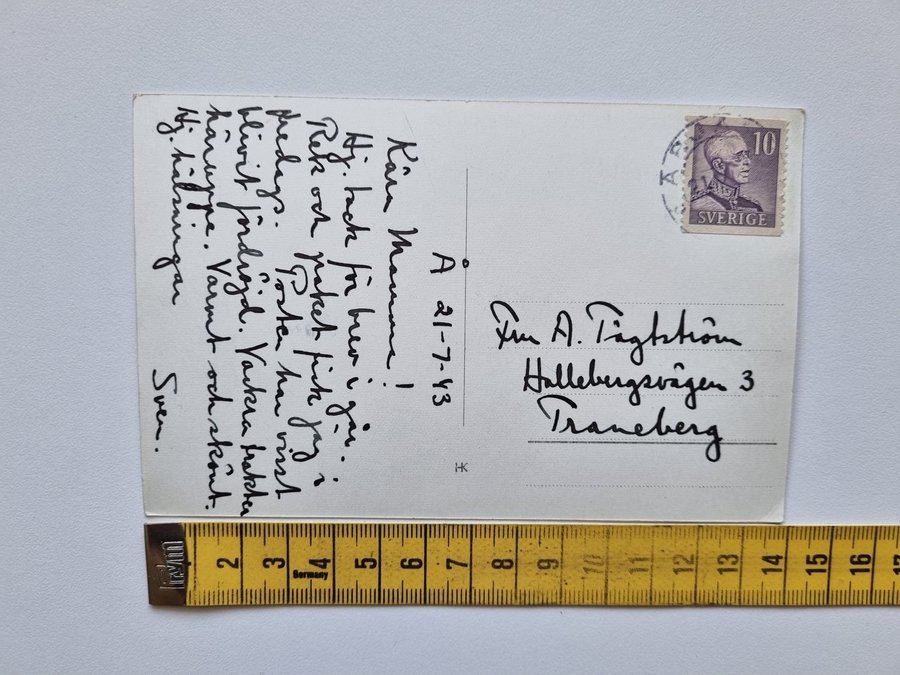 Å 21-7-43
Kära Mamma!
Hj. tack för brev i går.
Rek och paket fick jag i
fredags. Posten har visst
blivit fördröjd. Vackra trakter
häruppe. Varmt och skönt.
Hj. hälsningar
Sven.
10
SVERIGE
21
Fru A. Tägtström
Hallebergsvägen 3
Traneberg
HK
2 3 4 5 6 7 8 9 10 11 12 13 14 15 16 17
Germany